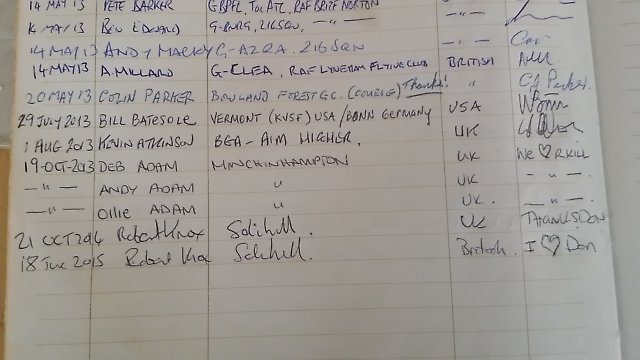 14 MAY 13 PETE BARKER GBPFL, TOC ATC, RAF BRIZE NORTON -"-
14 MAY 13 BEN EDWARD 216 SQN, -"-
14 MAY 13 ANDY MARKEY G-AZRA. 216 SQN -"-
14 MAY 13 A. MILLARD G-CLEA. RAF LYNEHAM FLYING CLUB BRITISH
20 MAY 13 COLIN PARKER BOWLAND FOREST G.C. (COURGE) Thanks! -"- CJ Parker
29 JULY 2013 BILL BATESOLE VERMONT (KVSF) USA / BONN GERMANY USA
1 AUG 2013 KEVIN ATKINSON BGA - AIM HIGHER. UK
19-OCT-2013 DEB ADAM MINCHINHAMPTON UK We ♡ R KILL
-"- ANDY ADAM " UK -"-
-"- Ollie ADAM " UK. -"-
21 OCT 2014 Robert Knox Solihull. UK THANKS DON
18 June 2015 Robert Knox Solihull. British. I ♡ Don